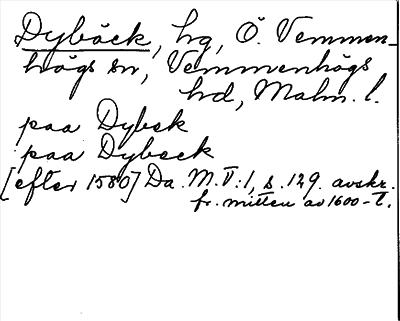 Dybäck, hg, Ö. Vemmen-
högs sn, Vemmenhögs
hd, Malm. l.
paa Dybek
paa Dybeck
[efter 1580] Da. M. V:1, s. 129. avskr.
fr. mitten av 1600-t.